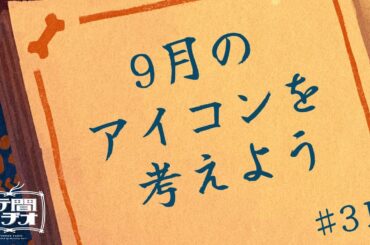 9月の
アイコンを
考えよう
#31